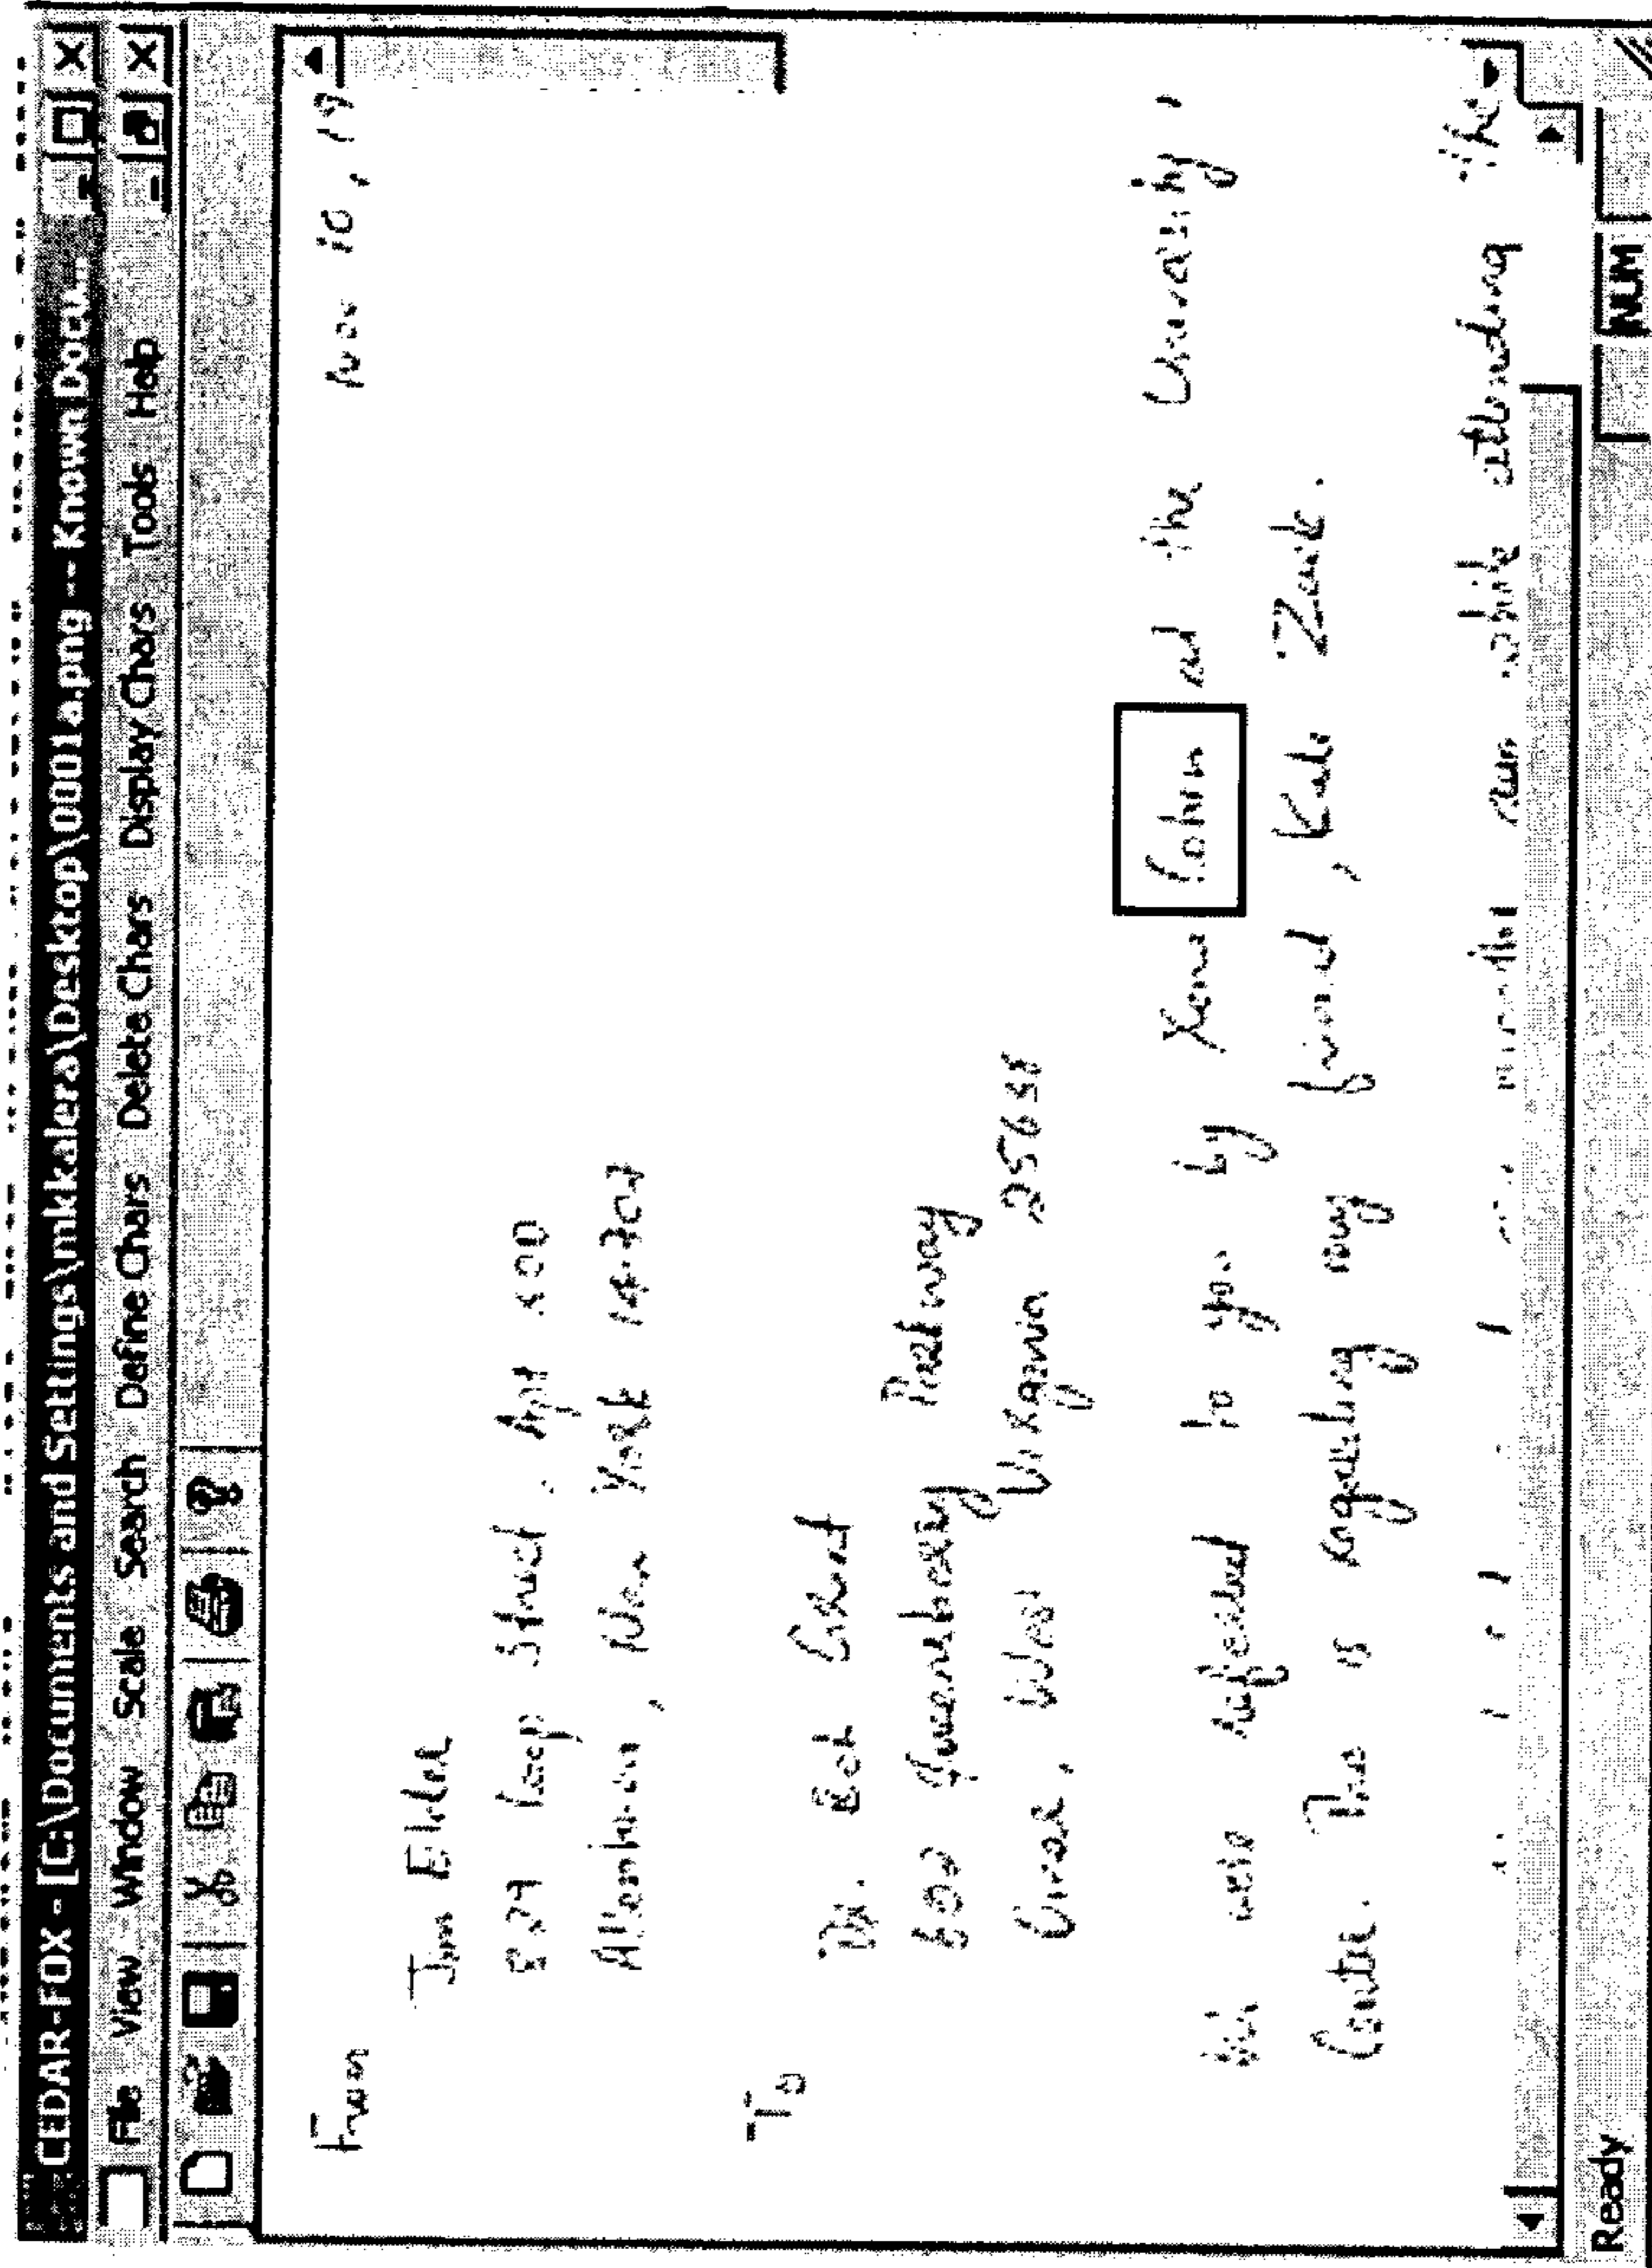 CEDAR-FOX - [C:\Documents and Settings\mkkalera\Desktop\0001a.png -- Known Docu...
File View Window Scale Search Define Chars Delete Chars Display Chars Tools Help
Nov 10, 19
From
Jim Elder
829 Loop Street, Apt 300
Allentown, New York 14707
To
Dr. Bob Grant
602 Queensberry Parkway
Omar, West Virginia 25638
We were referred to you by Xena Cohen at the University
Center. This is regarding my friend, Kate Zack.
while attending the
Ready
NUM